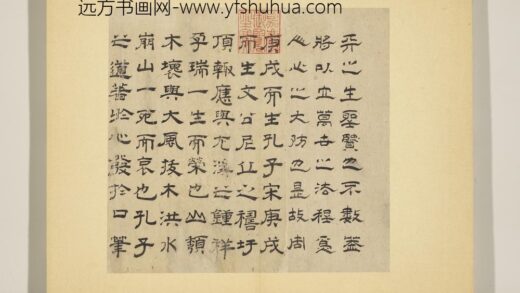 远方书画网-www.yfshuhua.com
天之生聖賢也不數蓋
將以立萬古之法程爲
人心之大防也是故周
庚戌而生孔子宋庚戌
而生文公尼丘之禱圩
頂輙應與尤溪之鍾祥
孚瑞一生而榮也山頹
木壞與大風拔木洪水
崩山一死而哀也孔子
之道蓄於心發於口筆